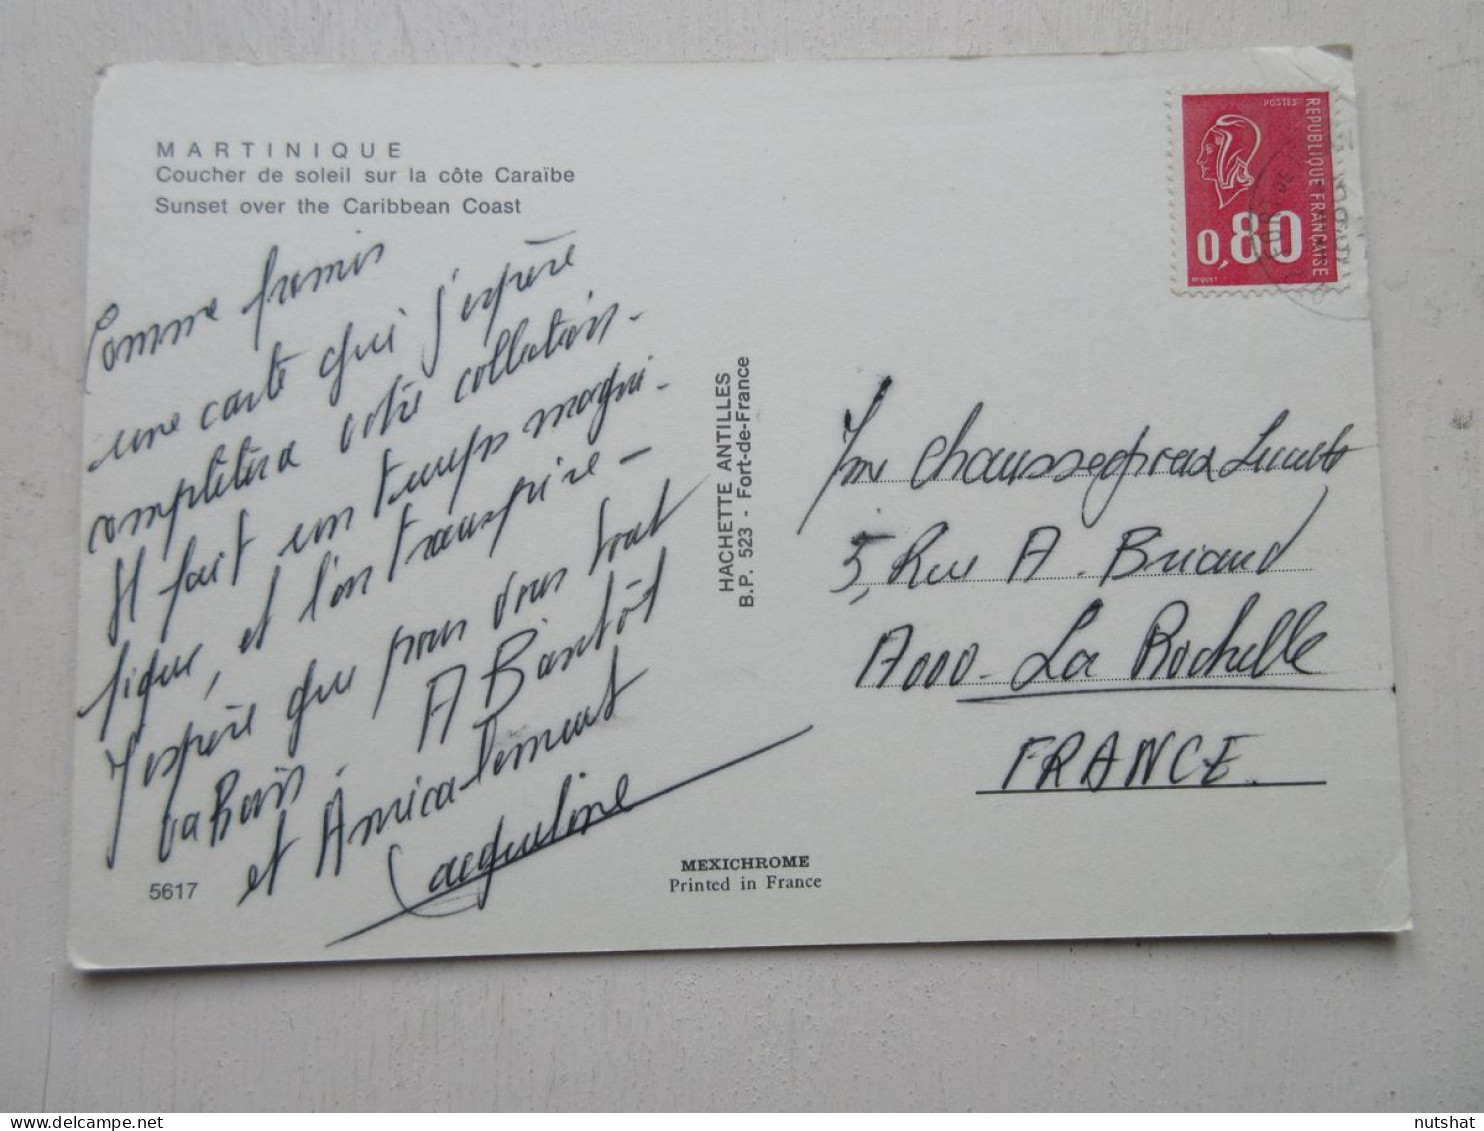 MARTINIQUE
Coucher de soleil sur la côte Caraïbe
Sunset over the Caribbean Coast
Comme promis
une carte qui j'espère
complètera votre collection.
Il fait un temps magni-
fique, et l'on transpire -
J'espère que pour vous tout
va bien. A Bientôt
et Amicalement
Jacqueline
5617
HACHETTE ANTILLES
B.P. 523 - Fort-de-France
MEXICHROME
Printed in France
POSTES
REPUBLIQUE FRANÇAISE
0,80
BEQUET
Chaussegroux
5, Rue A. Briand
17000 - La Rochelle
FRANCE.
nutshat